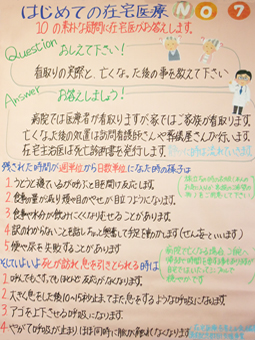 はじめての在宅医療 NO 7
10の素朴な疑問に在宅医がお答えします。
Question おしえて下さい！
看取りの実際と、亡くなった後の事を教えて下さい
Answer お答えしましょう！
病院では医療者が看取りますが、家ではご家族が看取ります。
亡くなった後の処置は訪問看護師さんや葬儀屋さんが行います。
在宅主治医は死亡診断書を発行します。
残された時間が週単位から日数単位になった時の様子は
1 うとうと寝ているが呼ぶと目を開け反応します。
2 食事の量が減り頬や目のやせが目立つようになります。
3 食事や水分が飲みにくくなりむせることがあります。
4 訳の分からないことを話したり、興奮して手足を動かします（せん妄といいます）
5 便や尿を失敗することがあります
そしていよいよ死が訪れ、息を引きとられる時は
1 呼んでもさすってもほとんど反応がなくなります。
2 大きく息をした後10〜15秒止まってまた息をするような呼吸になります。
3 アゴを上下させる呼吸になります。
4 やがて呼吸が止まりほぼ同時に脈が触れなくなります。